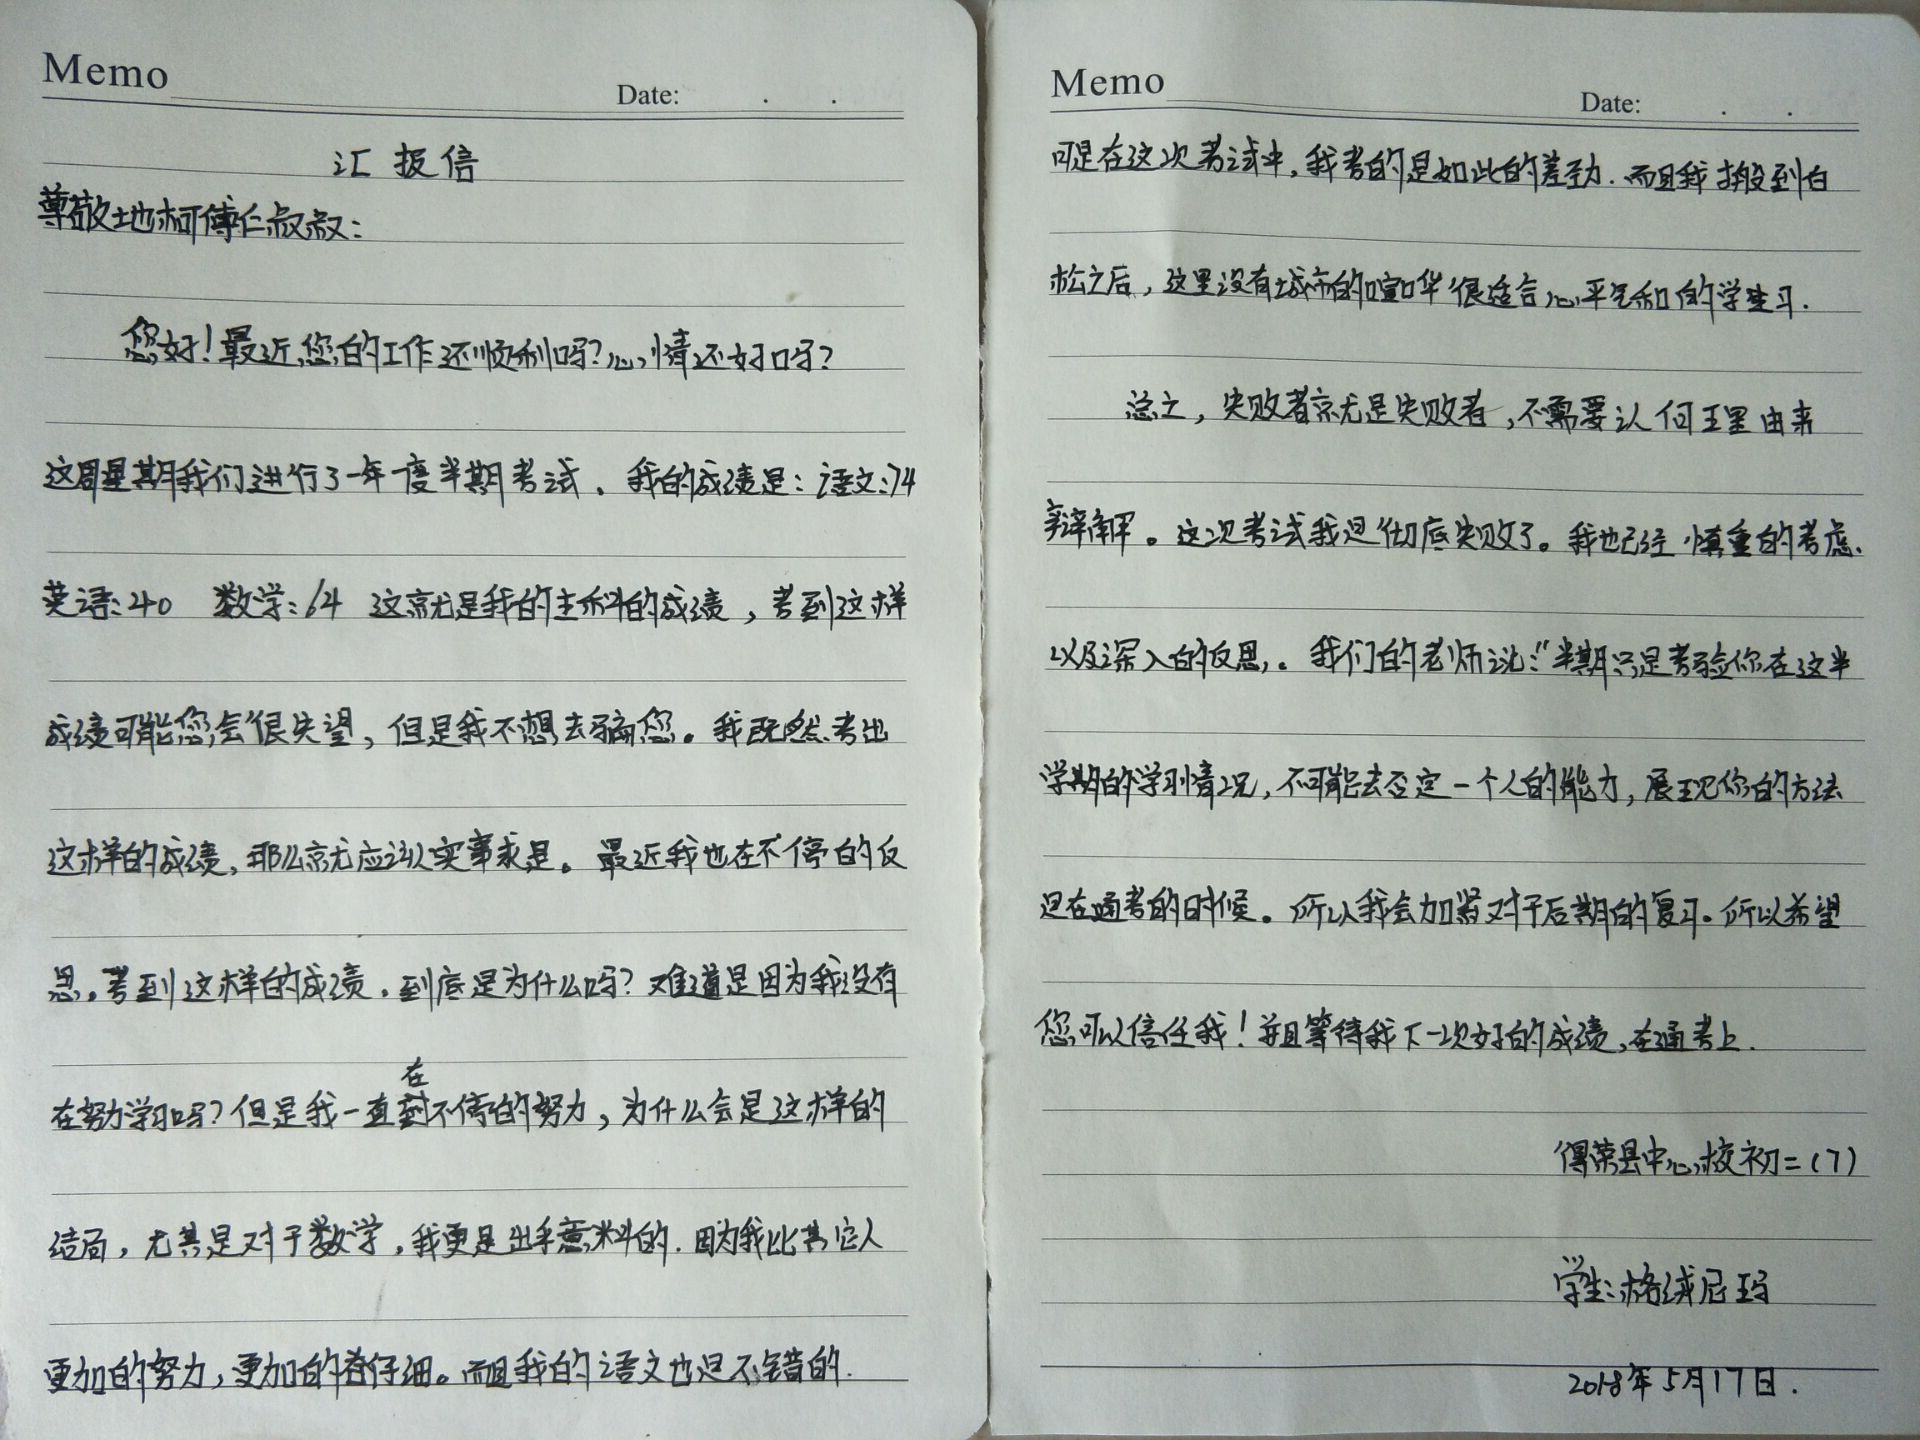 Memo
Date: . .
汇报信
尊敬地柯傅仁叔叔：
您好！最近您的工作还顺利吗？心情还好吗？
这周星期我们进行了一年一度半期考试。我的成绩是：语文：74
英语：40 数学：64 这就是我的主科的成绩，考到这样
成绩可能您会很失望，但是我不想去骗您。我既然考出
这样的成绩，那么就应该以实事求是。最近我也在不停的反
思。考到这样的成绩，到底是为什么吗？难道是因为我没有
在努力学习吗？但是我一直在不停的努力，为什么会是这样的
结局，尤其是对于数学，我更是出乎意料的．因为我比其它人
更加的努力，更加的看仔细。而且我的语文也是不错的．
Memo
Date: . .
可是在这次考试中，我考的是如此的差劲．而且我搬到白
松之后，这里没有城市的喧哗很适合心平气和的学生习．
总之，失败者就是失败者，不需要认何理由来
辩解。这次考试我是彻底失败了。我也已经慎重的考虑、
以及深入的反思。我们的老师说：“半期只是考验你在这半
学期的学习情况，不可能去否定一个人的能力，展现你的方法
是在通考的时候。所以我会加紧对于后期的复习。所以希望
您可以信任我！并且等待我下一次好的成绩，在通考上．
得荣县中心校初二（7）
学生：格绒尼玛
2018年5月17日．